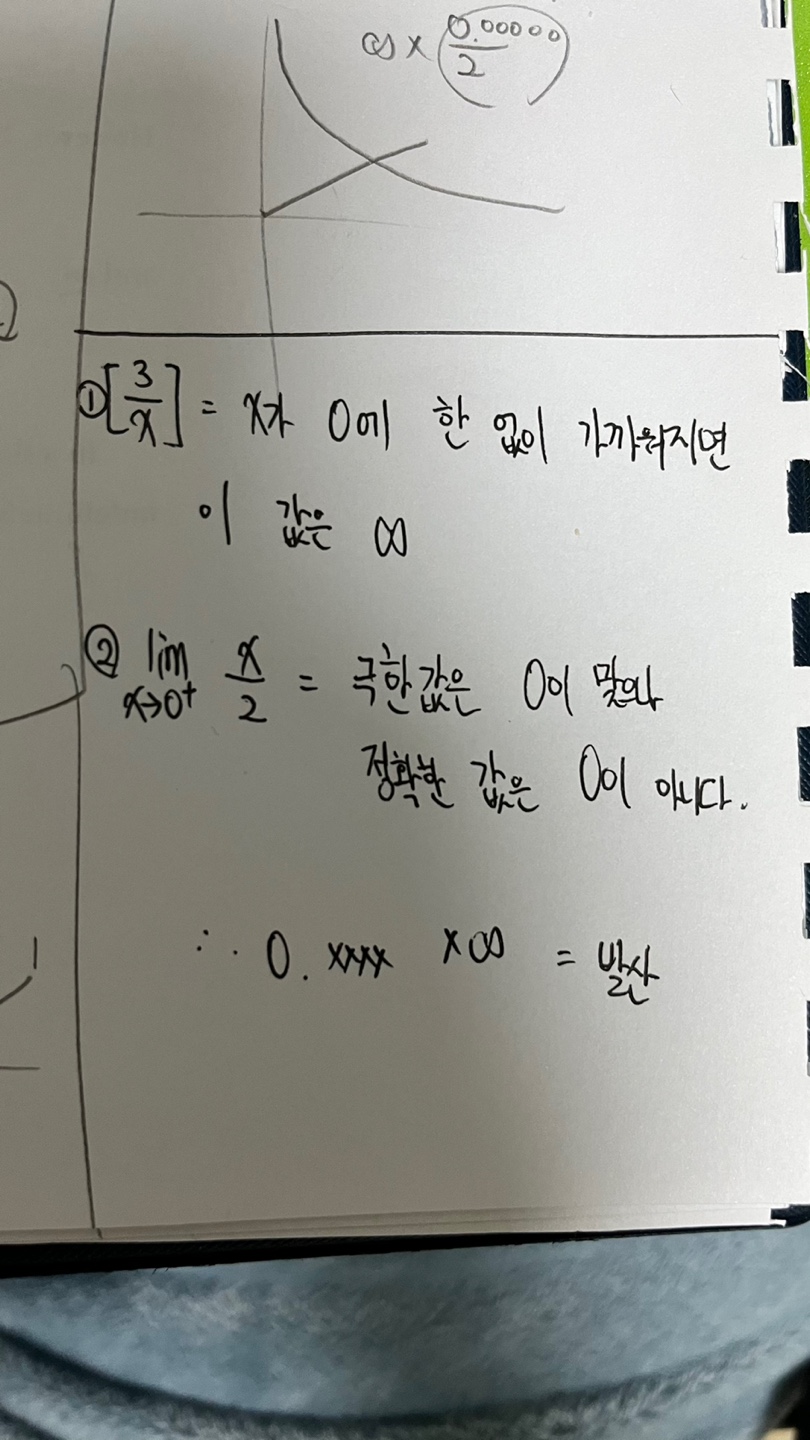 ∞ × 0.00000/2
① [3/x] = x가 0에 한 없이 가까워지면
이 값은 ∞
② lim x→0⁺ x/2 = 극한값은 0이 맞으나
정확한 값은 0이 아니다.
∴ 0.xxxx ×∞ = 발산